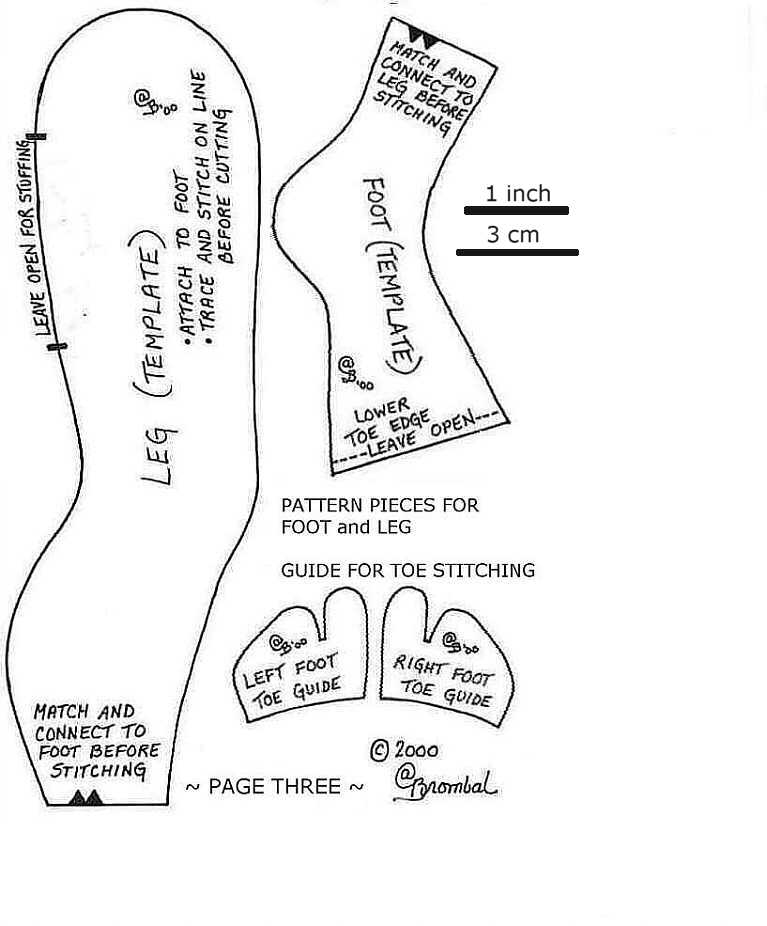 @B.'00
LEAVE OPEN FOR STUFFING
LEG (TEMPLATE)
•ATTACH TO FOOT
•TRACE AND STITCH ON LINE
BEFORE CUTTING
MATCH AND
CONNECT TO
FOOT BEFORE
STITCHING
MATCH AND
CONNECT TO
LEG BEFORE
STITCHING
FOOT (TEMPLATE)
@B.'00
LOWER
TOE EDGE
----LEAVE OPEN---
1 inch
3 cm
PATTERN PIECES FOR
FOOT and LEG
GUIDE FOR TOE STITCHING
@B.'00
LEFT FOOT
TOE GUIDE
@B.'00
RIGHT FOOT
TOE GUIDE
© 2000
@Brombal
~ PAGE THREE ~